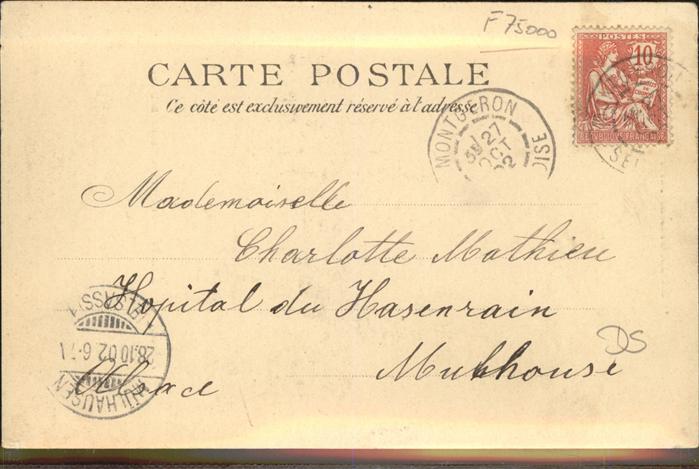 F 75000
CARTE POSTALE
Ce côté est exclusivement réservé à l'adresse
POSTES
10
REPUBLIQUE FRANÇAISE
MONTGERON
27
OCT
02
OISE
Mademoiselle
Charlotte Mathieu
Hopital du Hasenrain
Mulhouse
Alsace
DS
MÜLHAUSEN
28.10.02.6-7